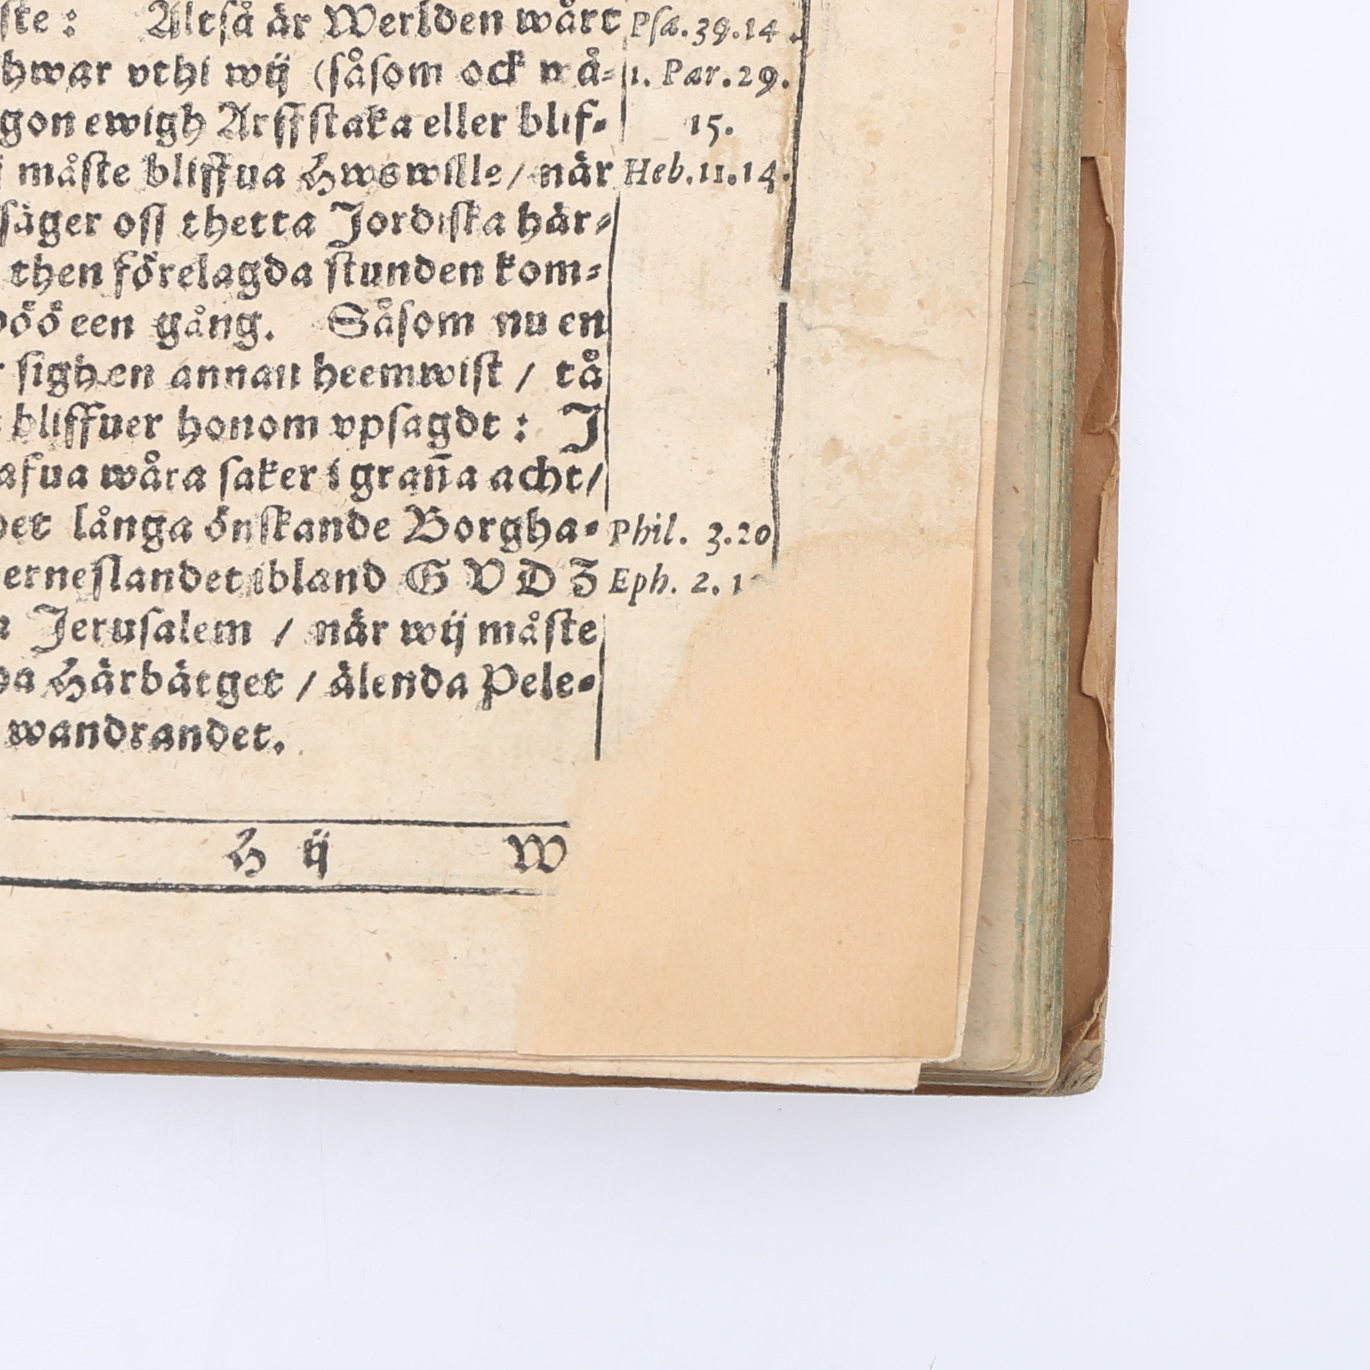 ste: Altså är Werlden wårt Psa.39.14.
hwar vthi wij (såsom ock nå- 1. Par.29.
gon ewigh Arffstaka eller blif- 15.
måste bliffua Hwswille / när Heb.11.14.
säger oss thetta Jordiska här-
then förelagda stunden kom-
döö een gång. Såsom nu en
sigh en annan heemwist / tå
bliffuer honom vpsagdt: J
afua wåra saker i graña acht /
det långa önskande Borgha- Phil. 3.20
erneslandet ibland GVDZ Eph. 2.1
Jerusalem / när wij måste
Härbärget / älenda Pele-
wandrandet.
H ij W